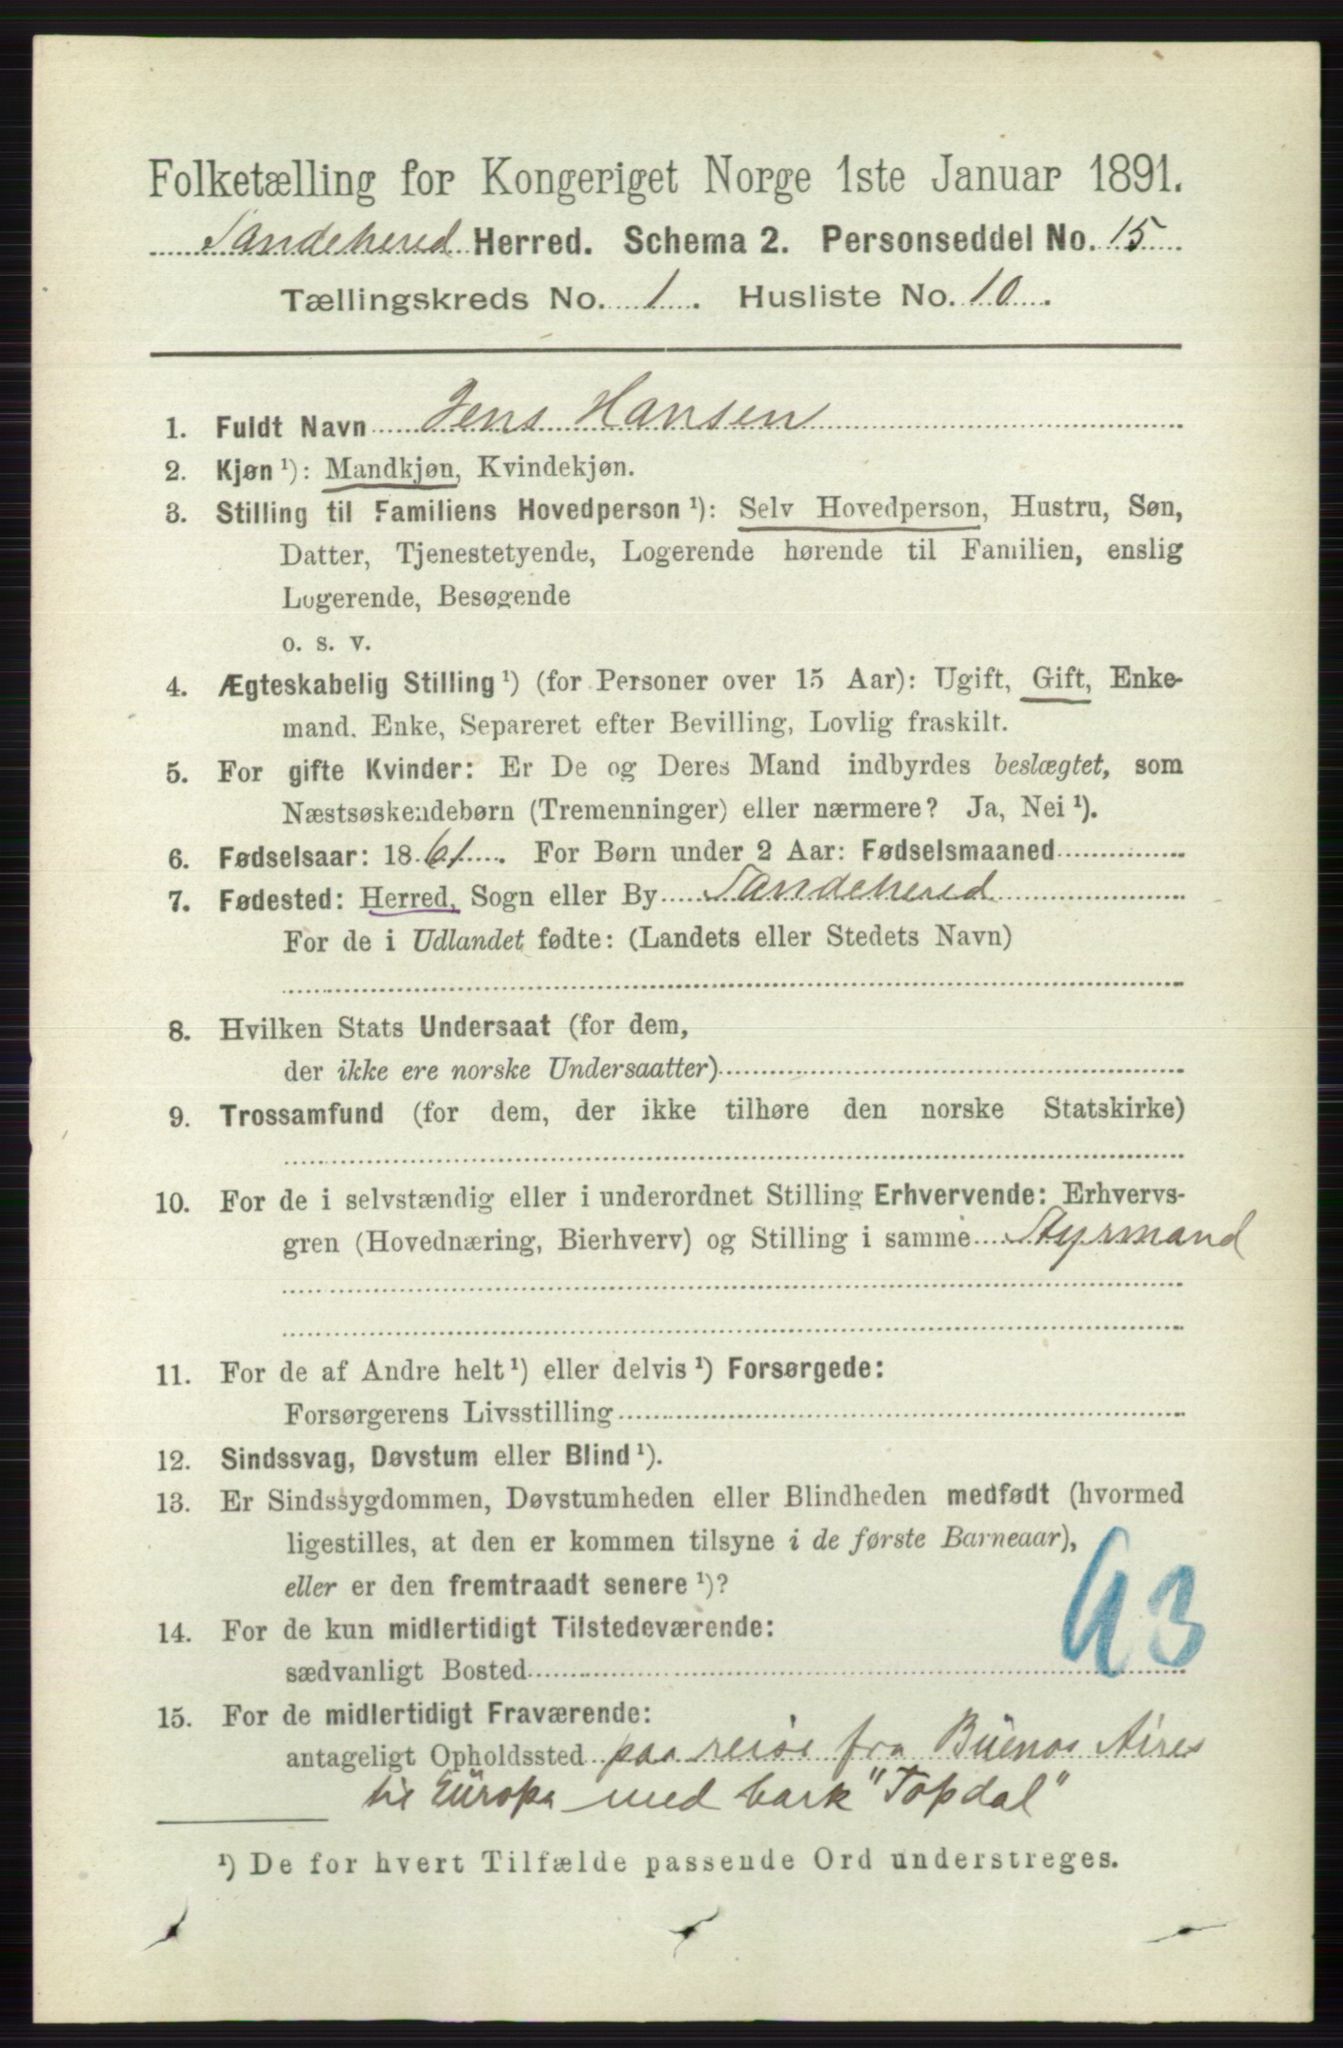 Folketælling for Kongeriget Norge 1ste Januar 1891.
Sandehered Herred. Schema 2. Personseddel No. 15
Tællingskreds No. 1. Husliste No. 10.
1. Fuldt Navn Jens Hansen
2. Kjøn ¹): Mandkjøn, Kvindekjøn.
3. Stilling til Familiens Hovedperson ¹): Selv Hovedperson, Hustru, Søn,
Datter, Tjenestetyende, Logerende hørende til Familien, enslig
Logerende, Besøgende
o. s. v.
4. Ægteskabelig Stilling ¹) (for Personer over 15 Aar): Ugift, Gift, Enke-
mand. Enke, Separeret efter Bevilling, Lovlig fraskilt.
5. For gifte Kvinder: Er De og Deres Mand indbyrdes beslægtet, som
Næstsøskendebørn (Tremenninger) eller nærmere? Ja, Nei ¹).
6. Fødselsaar: 1861. For Børn under 2 Aar: Fødselsmaaned
7. Fødested: Herred, Sogn eller By Sandehered
For de i Udlandet fødte: (Landets eller Stedets Navn)
8. Hvilken Stats Undersaat (for dem,
der ikke ere norske Undersaatter)
9. Trossamfund (for dem, der ikke tilhøre den norske Statskirke)
10. For de i selvstændig eller i underordnet Stilling Erhvervende: Erhvervs-
gren (Hovednæring, Bierhverv) og Stilling i samme Styrmand
11. For de af Andre helt ¹) eller delvis ¹) Forsørgede:
Forsørgerens Livsstilling
12. Sindssvag, Døvstum eller Blind ¹).
13. Er Sindssygdommen, Døvstumheden eller Blindheden medfødt (hvormed
ligestilles, at den er kommen tilsyne i de første Barneaar),
eller er den fremtraadt senere ¹)?
14. For de kun midlertidigt Tilstedeværende:
sædvanligt Bosted
43
15. For de midlertidigt Fraværende:
antageligt Opholdssted paa reise fra Buenos Aires
til Europa med bark "Topdal"
¹) De for hvert Tilfælde passende Ord understreges.